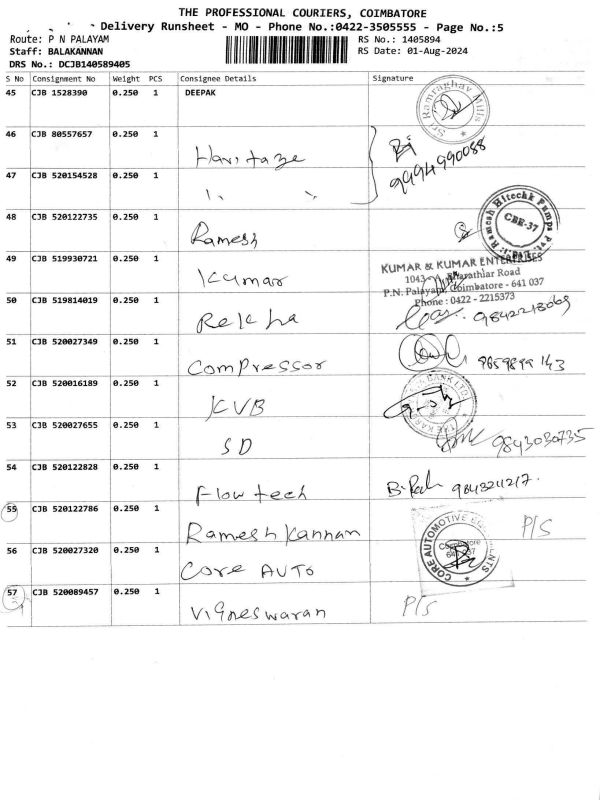 THE PROFESSIONAL COURIERS, COIMBATORE
Delivery Runsheet - MO - Phone No.:0422-3505555 - Page No.:5
Route: P N PALAYAM
RS No.: 1405894
Staff: BALAKANNAN
RS Date: 01-Aug-2024
DRS No.: DCJB140589405
S No Consignment No Weight PCS Consignee Details Signature
45 CJB 1528390 0.250 1 DEEPAK
Sri Ramraghav Mills
46 CJB 80557657 0.250 1
Haritage
9994990088
47 CJB 520154528 0.250 1
48 CJB 520122735 0.250 1
Ramesh
Ramesh Hitechk Pumps Pvt.
CBE-37
49 CJB 519930721 0.250 1
Kumar
KUMAR & KUMAR ENTERPRISES
Bharathiar Road
P.N. Palayam, Coimbatore - 641 037
Phone : 0422 - 2215373
50 CJB 519814019 0.250 1
Rekha
51 CJB 520027349 0.250 1
Compressor
52 CJB 520016189 0.250 1
KVB
BANK LTD
53 CJB 520027655 0.250 1
SD
9843030735
54 CJB 520122828 0.250 1
Flowtech
9843211217.
55 CJB 520122786 0.250 1
Ramesh Kannan
P/S
56 CJB 520027320 0.250 1
Core AUTO
CORE AUTOMOTIVE
Coimbatore
57 CJB 520089457 0.250 1
Vigneswaran
P/S